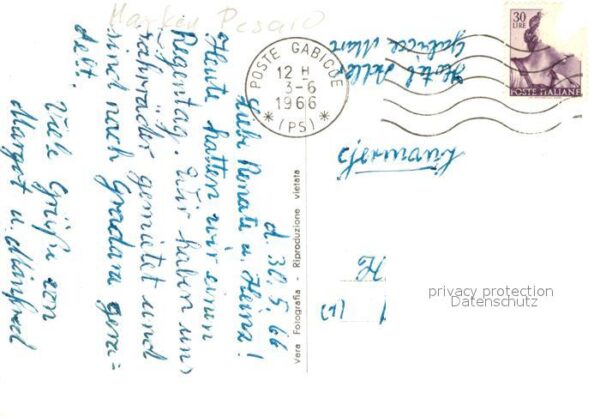 Marken Pesaro
d. 30.5.66
Liebe Renate u. Heinz!
Heute hatten wir einen
Regentag. Wir haben uns
gemietet und
sind nach Gradara gera=
delt.
Viele Grüße von
Margot u. Manfred
Vera Fotografia - Riproduzione vietata
POSTE GABICCE
12 H
3-6
1966
* (PS) *
30
LIRE
POSTE ITALIANE
Hotel
Gabicce Mare
(Germania)
privacy protection
Datenschutz